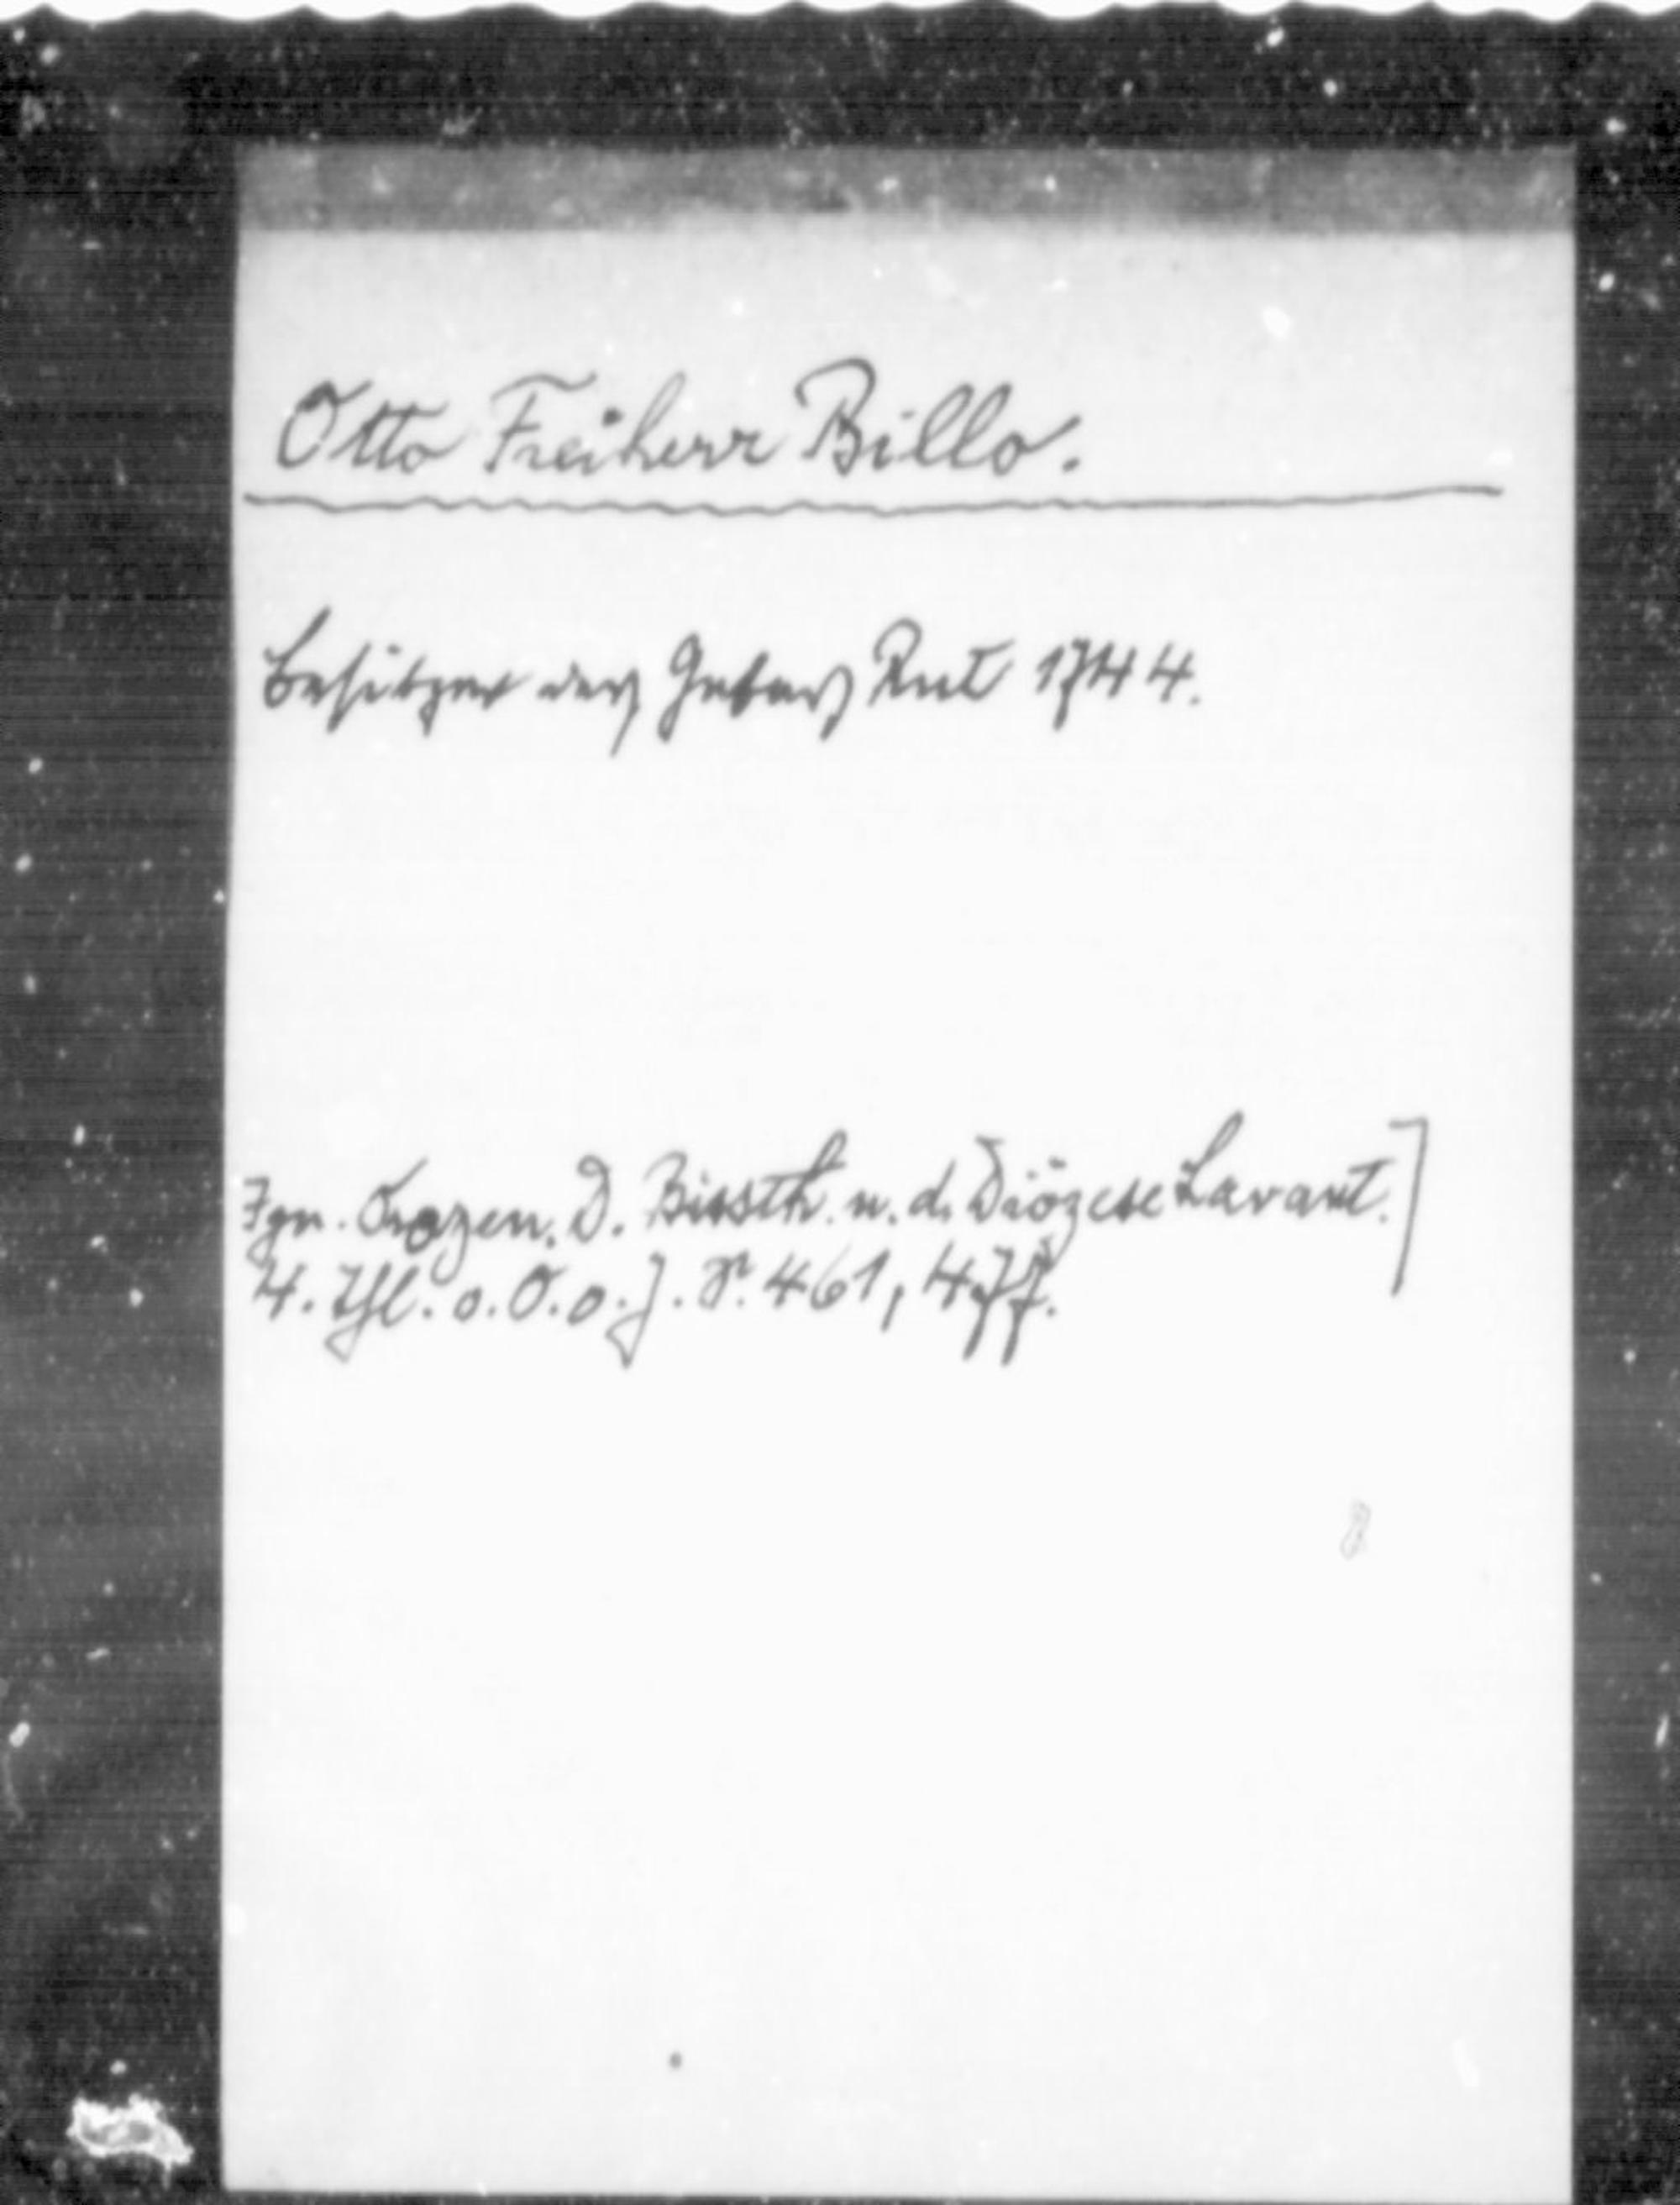 Otto Freiherr Billo.
Besitzer des Gutes Rut 1744.
Ign. Orožen. D. Bissth. u. d. Diözese Lavant.]
4. Thl. o. O. o. J. S. 461, 477.